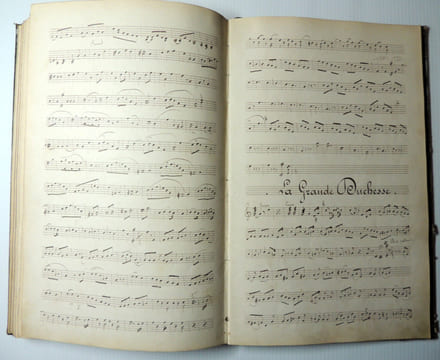 La Grande Duchesse.